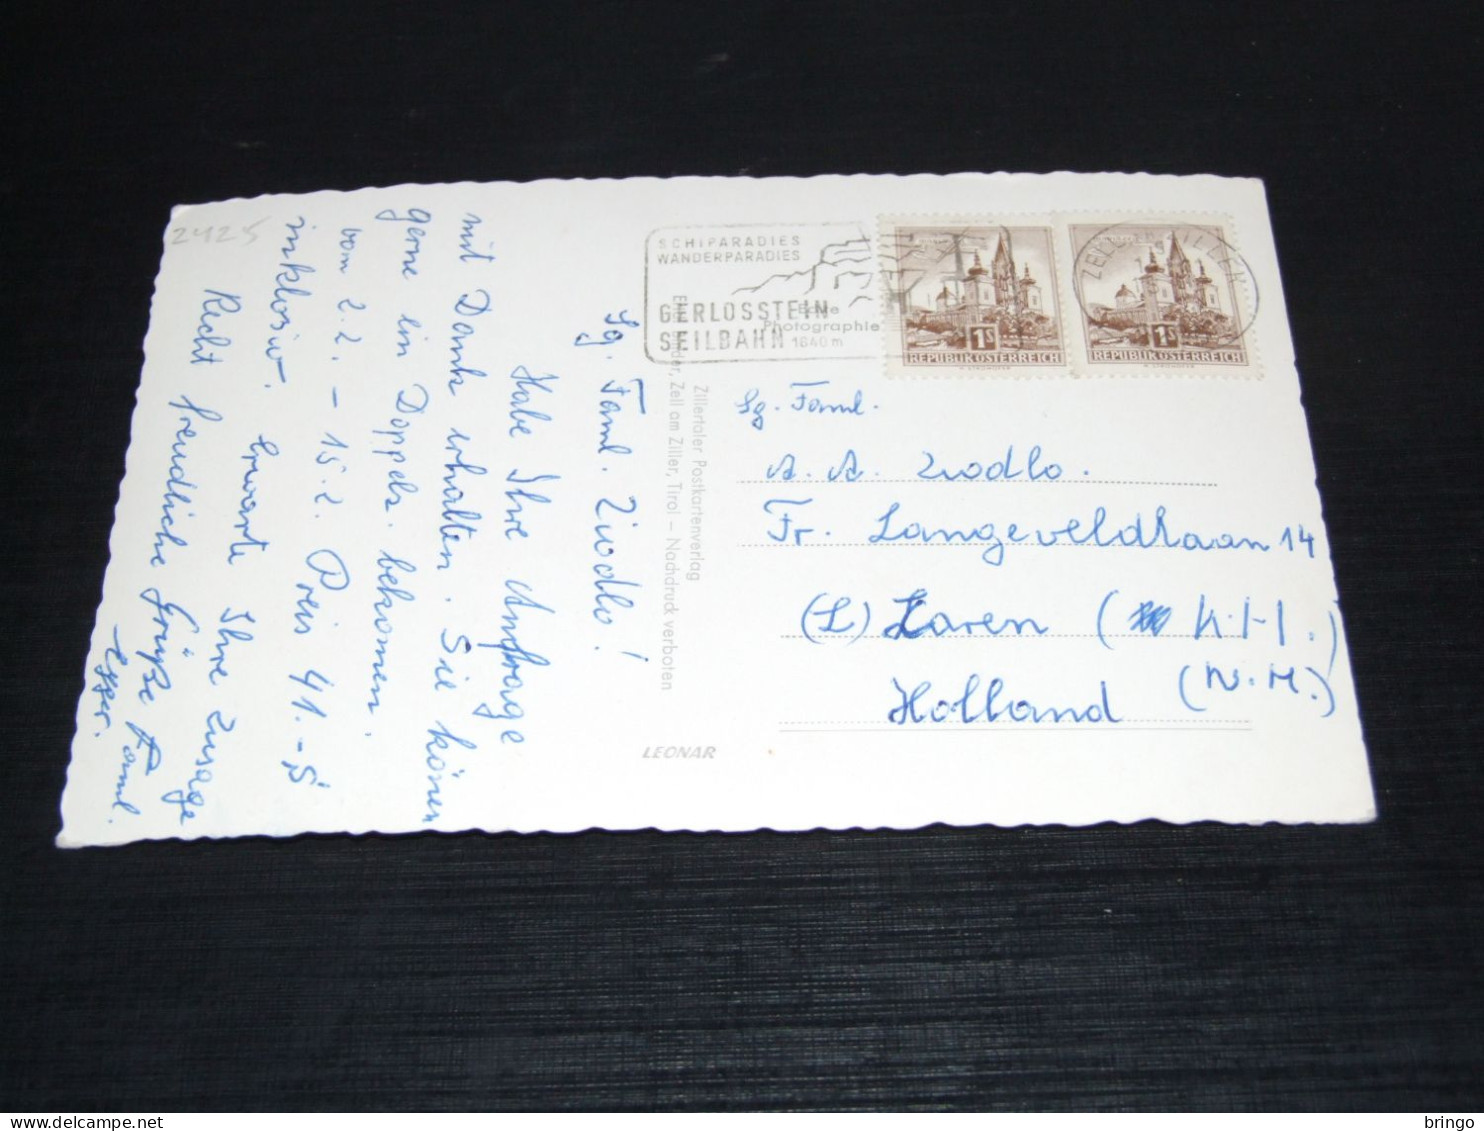 2425
Sg. Faml. Ziodlo!
Habe Ihre Anfrage
mit Dank erhalten. Sie könen
gerne ein Doppelz. bekomen.
vom 2.2. - 15.2. Preis 41.-S
inklosiv. Erwarte Ihre Zusage
Recht freudliche Grüße Faml.
Esser.
Zillertaler Postkartenverlag
Zell am Ziller, Tirol – Nachdruck verboten
LEONAR
SCHIPARADIES
WANDERPARADIES
GERLOSSTEIN
SEILBAHN 1640 m
Echte
Photographie
ZELL AM ZILLER
1S
REPUBLIK ÖSTERREICH
1S
REPUBLIK ÖSTERREICH
Sg. Faml.
A. A. Ziodlo.
Fr. Langeveldlaan 14
(L) Laren (N.H.)
Holland (N.H.)
bringo
delcampe.net